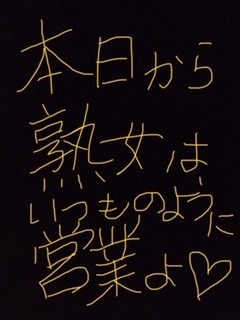 本日から
熟女は
いつものように
営業よ♡